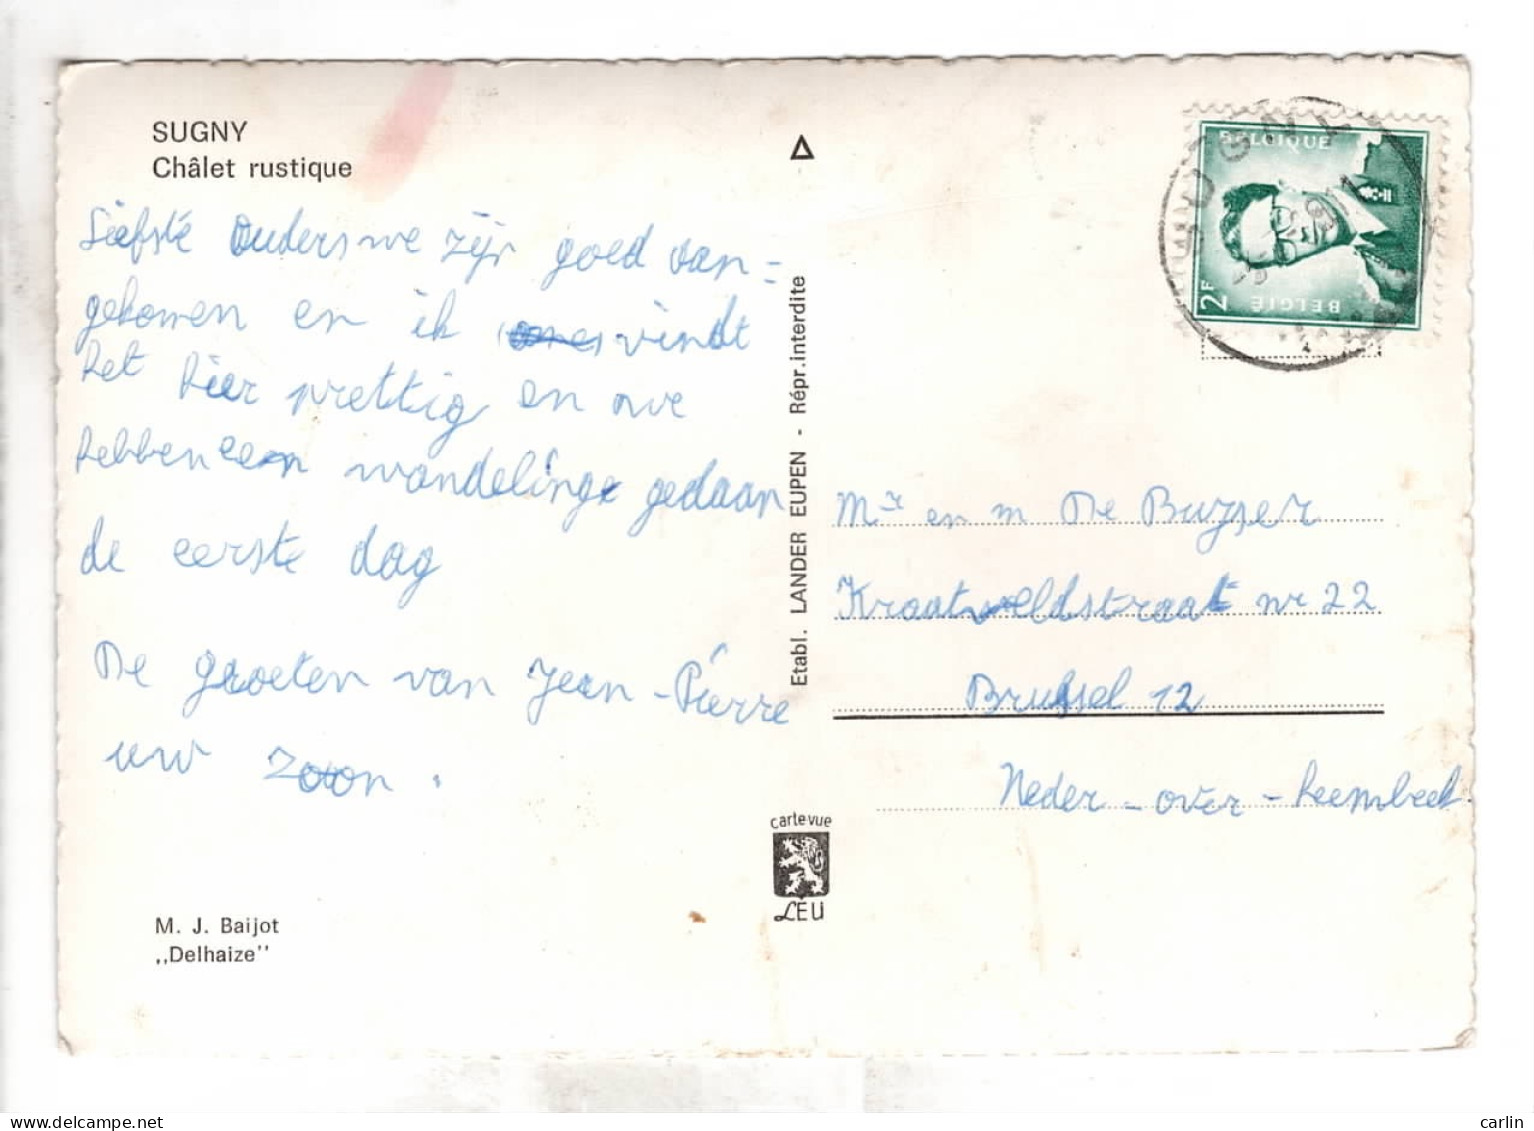 SUGNY
Châlet rustique
Liefste Ouders we zijn goed aan=
gekomen en ik vindt
het hier prettig en we
hebben een wandeling gedaan
de eerste dag
De groeten van Jean-Pierre
uw zoon.
M. J. Baijot
,,Delhaize''
Etabl. LANDER EUPEN - Répr. interdite
carte vue
LEU
SUGNY
BELGIQUE
BELGIË
2F
Mr en m De Buyser
Kraatveldstraat nr 22
Brussel 12
Neder-over-heembeek.
delcampe.net
carlin